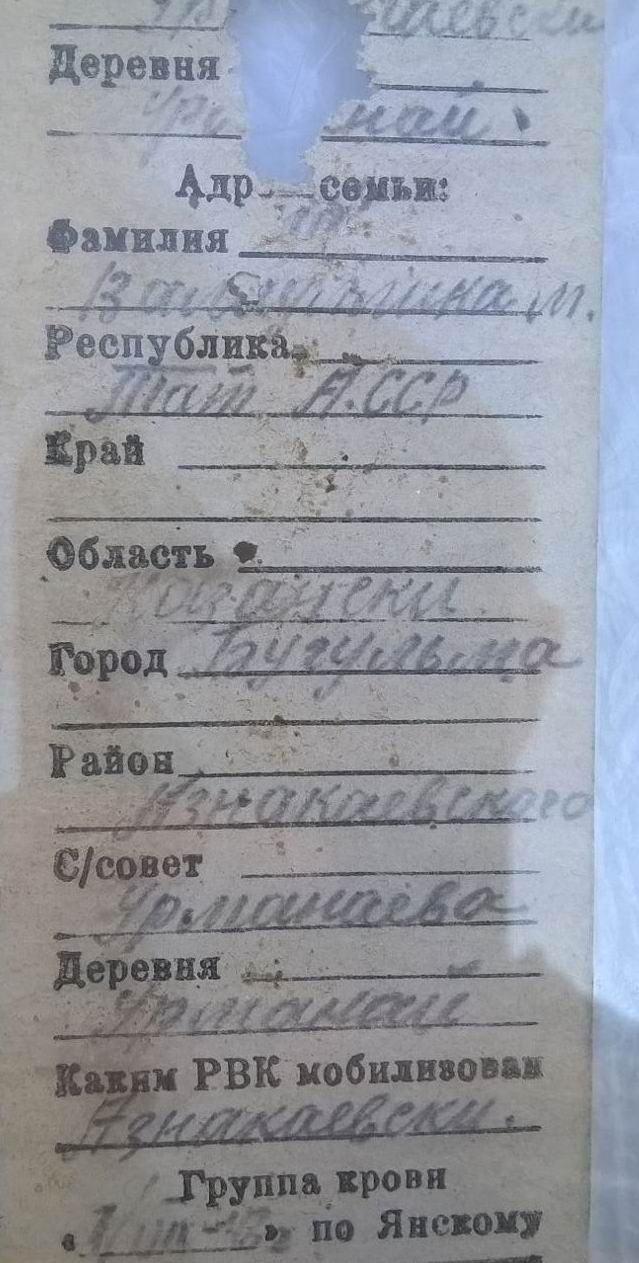 Деревня
Адр семьи:
Фамилия
М.
Республика
Тат А.ССР
Край
Область
Казански
Город Бугульма
Район
Азнакаевского
С/совет
Урманаева
Деревня
Урманай
Каким РВК мобилизован
Азнакаевски.
Группа крови
« » по Янскому